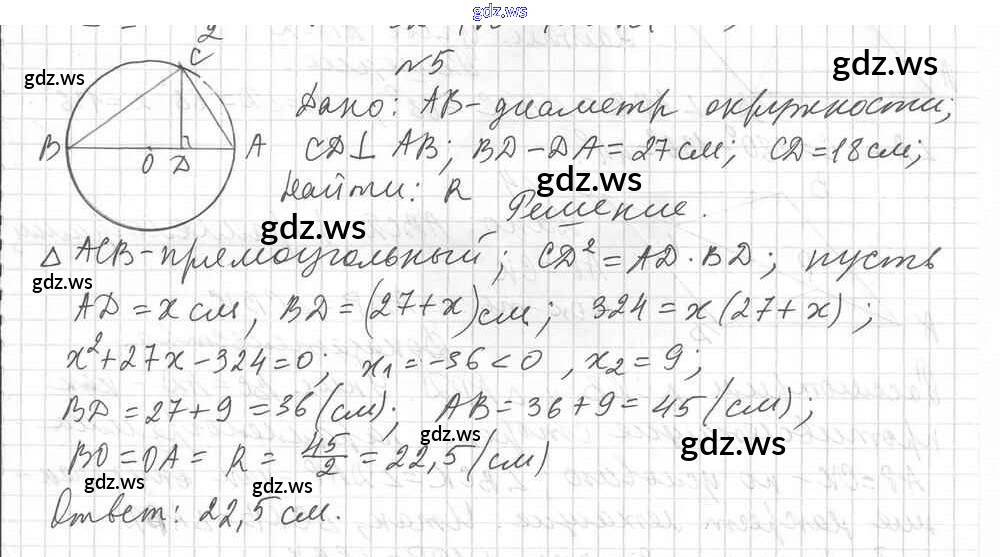 gdz.ws
№5
gdz.ws
gdz.ws
C
Дано: AB - диаметр окружности;
B
O
D
A
CD⊥ AB; BD - DA = 27 см; CD = 18 см;
gdz.ws
Найти: R
Решение.
gdz.ws
△ ACB - прямоугольный; CD² = AD · BD; пусть
gdz.ws
AD = x см, BD = (27 + x) см; 324 = x (27 + x);
x² + 27x - 324 = 0; x₁ = -36 < 0, x₂ = 9;
BD = 27 + 9 = 36 (см); AB = 36 + 9 = 45 (см);
gdz.ws
gdz.ws
BO = OA = R = 45/2 = 22,5 (см)
gdz.ws
gdz.ws
Ответ: 22,5 см.